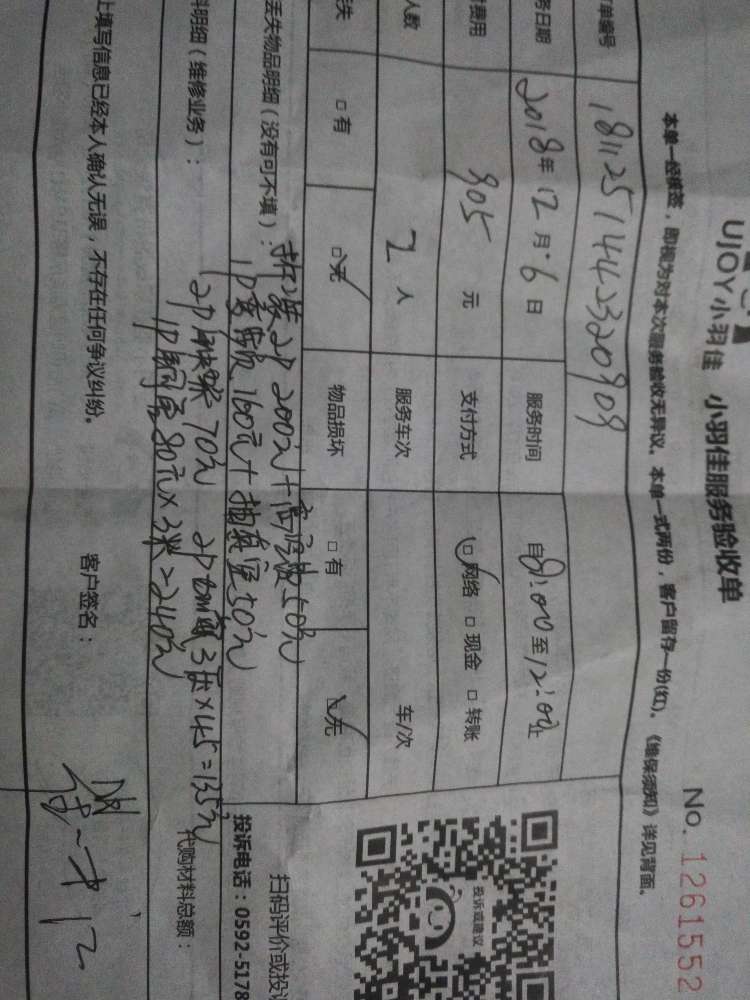 UJOY小羽佳 小羽佳服务验收单
No. 1261552
本单一经核签，即视为对本次服务验收无异议。本单一式两份，客户留存一份(红)。《维保须知》详见背面。
单编号 1811251442320909
务日期 2018年12月6日 服务时间 自8:00至12:00止
费用 905元 支付方式 ☑网络 □现金 □转账
人数 2人 服务车次 车/次
失 □有 ☑无 物品损坏 □有 ☑无
丢失物品明细（没有可不填）：拆装2P 200元+高空费50元
1P 160元+抽真空50元
料明细（维修业务）：2P 70元 2P 3米×45=135元
1P 80元×3米=240元
代购材料总额：
上填写信息已经本人确认无误，不存在任何争议纠纷。
客户签名：
投诉或建议
扫码评价或投
投诉电话：0592-5178